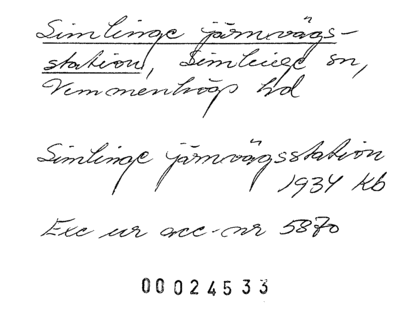 Simlinge järnvägs-
station, Simlinge sn,
Vemmenhögs hd
Simlinge järnvägsstation
1934 Kb
Exc ur acc-nr 5870
00024533